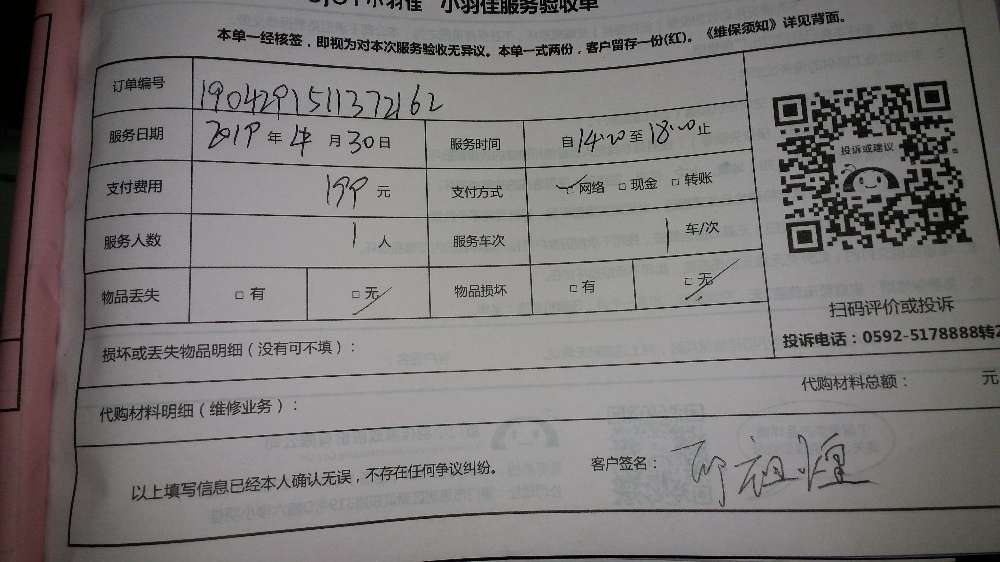 小羽佳 小羽佳服务验收单
本单一经核签，即视为对本次服务验收无异议。本单一式两份，客户留存一份(红)。《维保须知》详见背面。
订单编号 1904291511372162
服务日期 2019 年 4 月 30 日 服务时间 自 14:00 至 18:00 止
支付费用 199 元 支付方式 ☑ 网络 □ 现金 □ 转账
服务人数 1 人 服务车次 1 车/次
物品丢失 □ 有 ☑ 无 物品损坏 □ 有 ☑ 无
投诉或建议
扫码评价或投诉
投诉电话：0592-5178888转2
损坏或丢失物品明细（没有可不填）：
代购材料明细（维修业务）： 代购材料总额： 元
以上填写信息已经本人确认无误，不存在任何争议纠纷。 客户签名： 祖煌